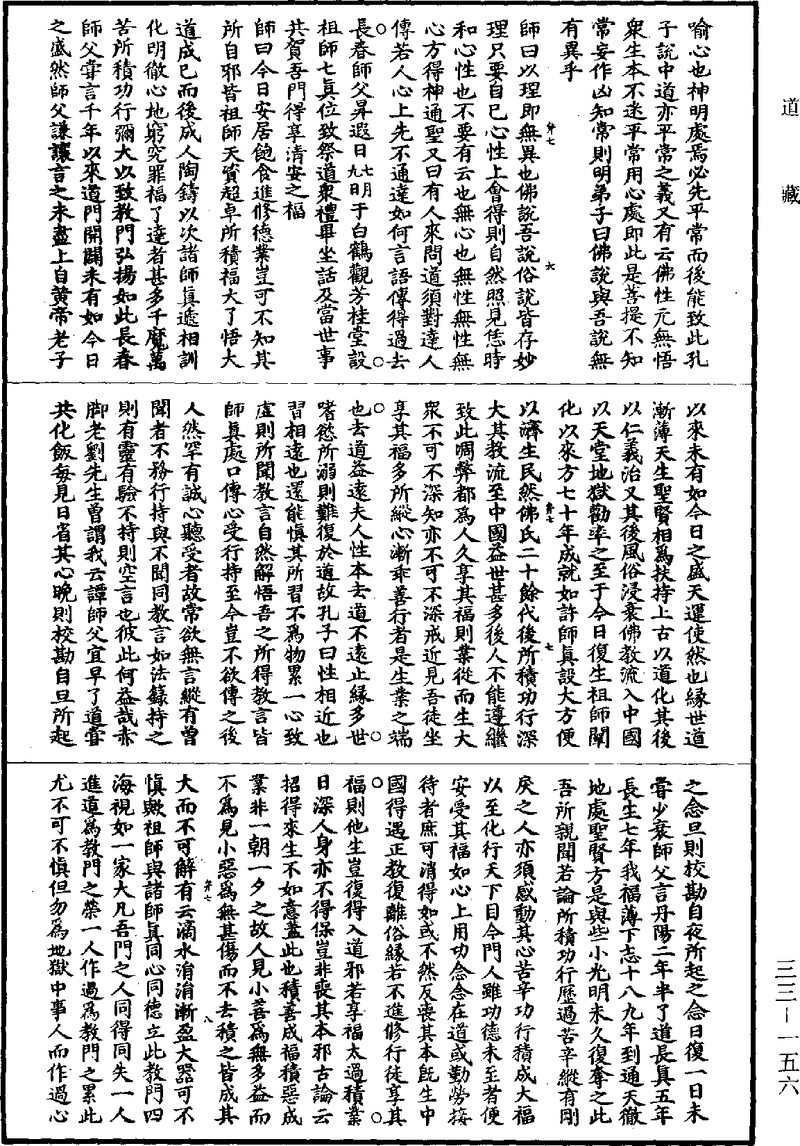 道藏
喻心也神明處焉必先平常而後能致此孔
子說中道亦平常之義又有云佛性元無悟
衆生本不迷平常用心處即此是菩提不知
常妄作凶知常則明弟子曰佛說與吾說無
有異乎
師曰以理即無異也佛說吾說俗說皆存妙
理只要自己心性上會得則自然照見恁時
和心性也不要有云也無心也無性無性無
心方得神通聖又曰有人來問道須對達人
傳若人心上先不通達如何言語傳得過去
長春師父昇遐日七月九日于白鶴觀芳桂堂設
祖師七眞位致祭道衆禮畢坐話及當世事
共賀吾門得享清安之福
師曰今日安居飽食進修德業豈可不知其
所自邪皆祖師天質超卓所積福大了悟大
道成已而後成人陶鑄以次諸師眞遞相訓
化明徹心地窮究罪福了達者甚多千魔萬
苦所積功行彌大以致教門弘揚如此長春
師父甞言千年以來道門開闢未有如今日
之盛然師父謙讓言之未盡上自黃帝老子
弟七 六
以來未有如今日之盛天運使然也緣世道
漸薄天生聖賢相爲扶持上古以道化其後
以仁義治又其後風俗浸衰佛教流入中國
以天堂地獄勸率之至于今日復生祖師闡
化以來方七十年成就如許師眞設大方便
以濟生民然佛氏二十餘代後所積功行深
大其教流至中國益世甚多後人不能遵繼
致此凋弊都爲人久享其福則業從而生大
衆不可不深知亦不可不深戒近見吾徒坐
享其福多所縱心漸乖善行者是生業之端
也去道益遠夫人性本去道不遠止緣多世
嗜慾所溺則難復於道故孔子曰性相近也
習相遠也還能愼其所習不爲物累一心致
虛則所聞教言自然解悟吾之所得教言皆
師眞處口傳心受行持至今豈不欲傳之後
人然罕有誠心聽受者故常欲無言縱有曾
聞者不務行持與不聞同教言如法籙持之
則有靈有驗不持則空言也彼此何益哉赤
脚老劉先生曾謂我云譚師父宜早了道甞
共化飯每見日省其心晚則校勘自旦所起
弟七 七
之念旦則校勘自夜所起之念日復一日未
甞少衰師父言丹陽二年半了道長眞五年
長生七年我福薄下志十八九年到通天徹
地處聖賢方是與些小光明未久復奪之此
吾所親聞若論所積功行歷過苦辛縱有剛
戾之人亦須感動其心苦辛功行積成大福
以至化行天下目今門人雖功德未至者便
安受其福如心上用功念念在道或勤勞接
待者庶可消得如或不然反喪其本旣生中
國得遇正教復離俗緣若不進修行徒享其
福則他生豈復得入道邪若享福太過積業
日深人身亦不得保豈非喪其本邪古論云
招得來生不如意蓋此也積善成福積惡成
業非一朝一夕之故人見小善爲無多益而
不爲見小惡爲無甚傷而不去積之皆成其
大而不可解有云滴水涓涓漸盈大器可不
愼歟祖師與諸師眞同心同德立此教門四
海視如一家大凡吾門之人同得同失一人
進道爲教門之榮一人作過爲教門之累此
尤不可不愼但勿爲地獄中事人而作過心
弟七 八
三三－一五六